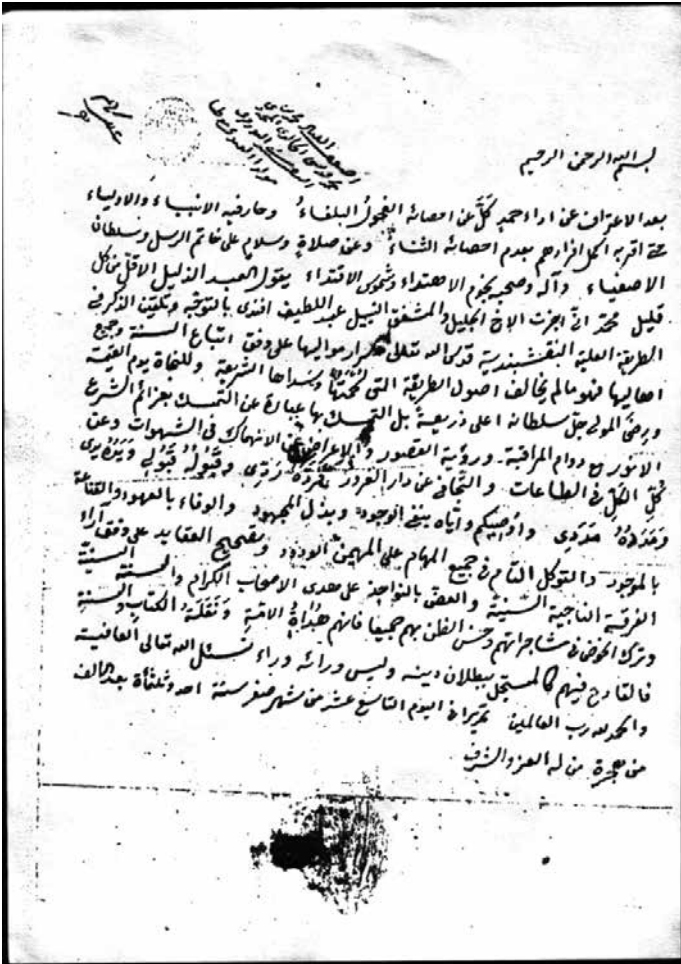 بسم الله الرحمن الرحيم
بعد الاعتراف عن اداء حمدٍ كَلَّ عن احصائه الفحول البلغاءُ وحار فيه الانبياء والاولياء
حتى اقر به الكل اقرارهم بعدم احصائه الثناءُ وعن صلاةٍ وسلامٍ على خاتم الرسل وسلطان
الاصفياء وآله وصحبه نجوم الاهتداء وشموس الاقتداء يقول العبد الذليل الاقل من كل
قليل محمد انى اجزت الاخ الجليل والمشفق النبيل عبد اللطيف افندى بالتوجّه وتلقين الذكر فى
الطريقة العلية النقشبندية قدس الله تعالى اسرار مواليها على وفق اتباع السنة وجميع
اهاليها فهو مالم يخالف اصول الطريقة التى لُحْمَتُها وسَداها الشريعة وللنجاة يوم الفيئة
ورضى المولى جل سلطانه اعلى ذريعة بل التمسك بها عبارة عن التمسك بعزائم الشرع
الانور مع دوام المراقبة ورؤية القصور والاعراض عن الانهماك فى الشهوات وعن
كُلِّ الكَلِّ فى الطاعات والتجافى عن دار الغرور فَرَدُّهُ رَدّى وقَبُولُهُ قَبُولى ويَدُهُ يدى
ومَدَدُهُ مَدَدى واوصيكم واياه بنفى الوجود وبذل المجهود والوفاء بالعهود والقناعة
بالموجود والتوكل التام فى جميع المهام على المهيمن الودود وبتصحيح العقايد على وفق آراء
الفرقة الناجية السنية والعض بالنواجذ على هدى الاصحاب الكرام والسنة السنية
وترك الخوض فى مشاجراتهم وحسن الظن بهم جميعا فانهم هُداةُ الامة ونَقَلَة الكتاب والسنة
فالقادح فيهم كالمستحل ببطلان دينه وليس ورائه وراء نسئل الله تعالى العافية
والحمد لله رب العالمين تحريرا فى اليوم التاسع عشر من شهر صفر سنة احد وثلثمأة بعد الالف
من هجرة من له العز والشرف